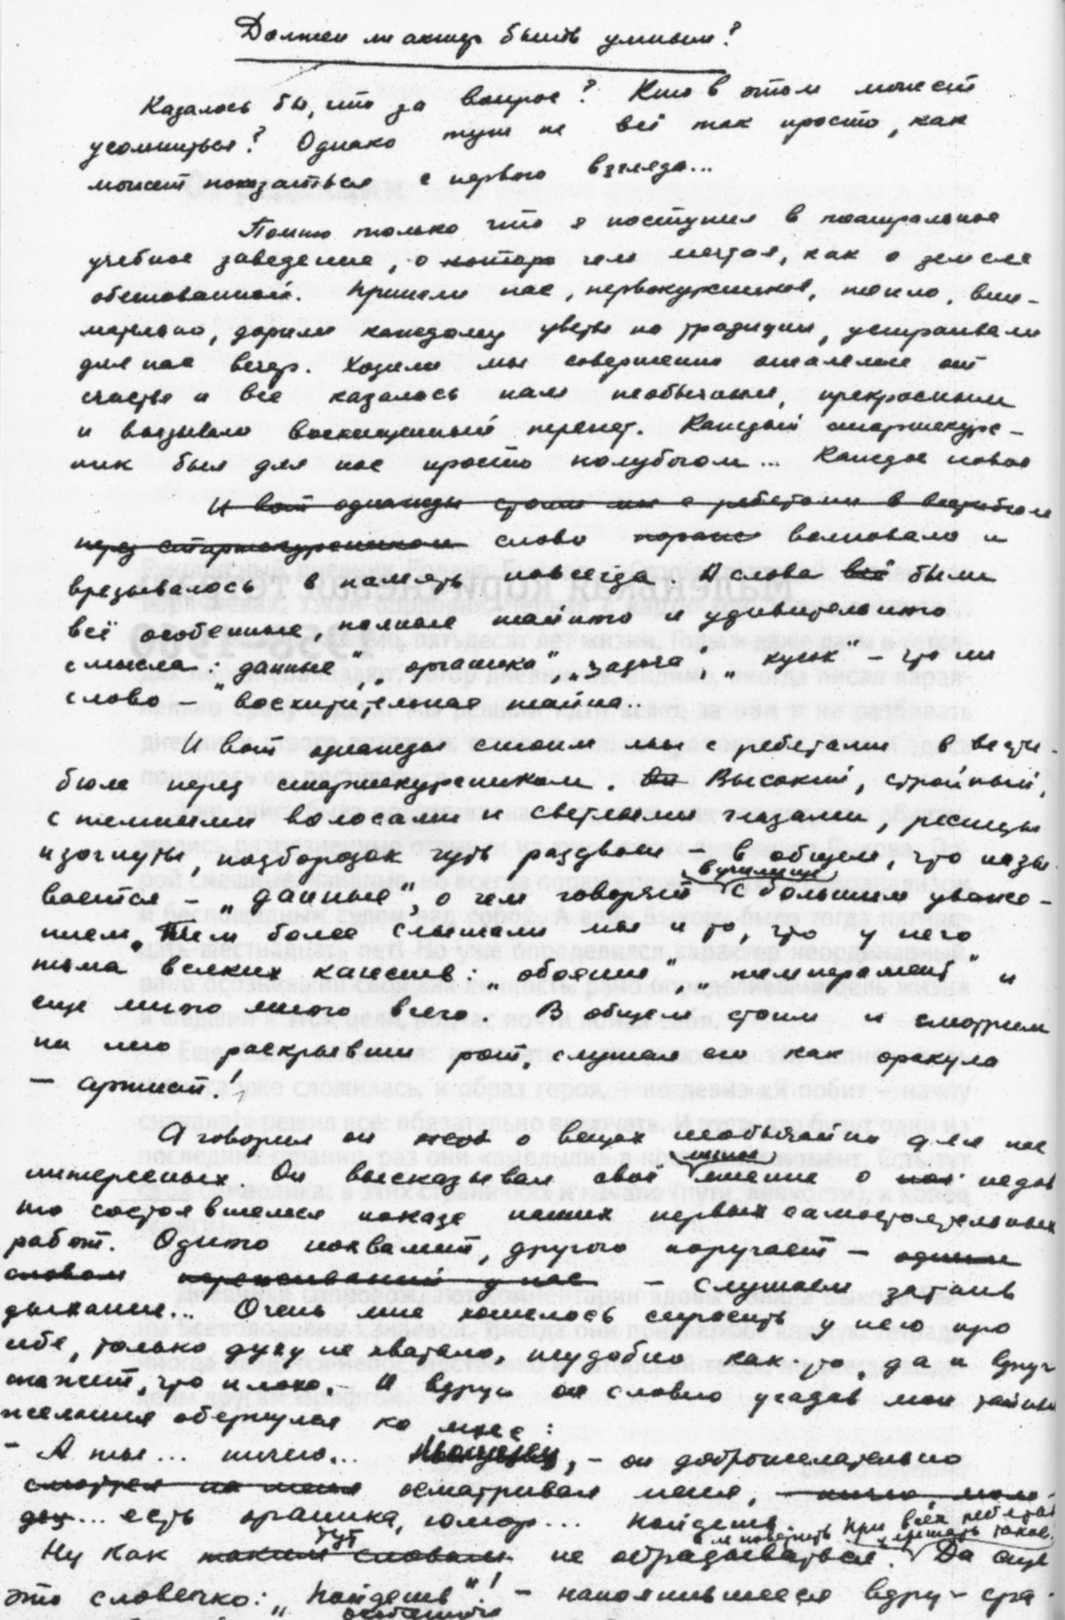 Должен ли актер быть умным?
Казалось бы, что за вопрос? Кто в этом может
усомниться? Однако тут не всё так просто, как
может показаться с первого взгляда...
Помню только что я поступил в театральное
учебное заведение, о котором мечтал, как о земле
обетованной. Приняли нас, первокурсников, тепло, вни-
мательно, дарили каждому цветы по традиции, устраивали
для нас вечер. Ходили мы совершенно ошалелые от
счастья и все казалось нам необычным, прекрасным
и вызывало восхищенный трепет. Каждый старшекурс-
ник был для нас просто полубогом... Каждое новое
И вот однажды стоим мы с ребятами в вестибюле
перед старшекурсником слово волновало и
врезывалось в память навсегда. А слова всё были
всё особенные, полные тайного и удивительного
смысла: „данные", „органика", „задача", „кусок" – что ни
слово – восхитительная тайна..
И вот однажды стоим мы с ребятами в вести-
бюле перед старшекурсником. Он Высокий, стройный,
с темными волосами и светлыми глазами, ресницы
изогнуты, подбородок чуть раздвоен – в общем, что назы-
вается – „данные", о чем говорят в училище с большим уваже-
нием. Тем более слышали мы и то, что у него
тьма всяких качеств: „обаяние", „темперамент" и
еще много много всего. В общем стоим и смотрим
на него раскрывши рот, слушая его как оракула
– артист!
А говорил он о вещах необычайно для нас
интересных. Он высказывал своё личное мнение о недав
но состоявшемся показе наших первых самостоятельных
работ. Одного похвалит, другого поругает – одним
словом – слушаем затаив
дыхание... Очень мне хотелось спросить у него про
себя, только духу не хватало, неудобно как-то, да и вдруг
скажет, что плохо. – И вдруг он словно угадав мои тайные
желания обернулся ко мне:
– А ты... ничего... – он доброжелательно
смотрел на меня осматривал меня, – ничего, моло-
дец... есть органика, юмор... Пойдешь.
Ну как тут не обрадоваться. При всех ребятах Да еще
это словечко: „Пойдешь"! – наполнившееся вдруг